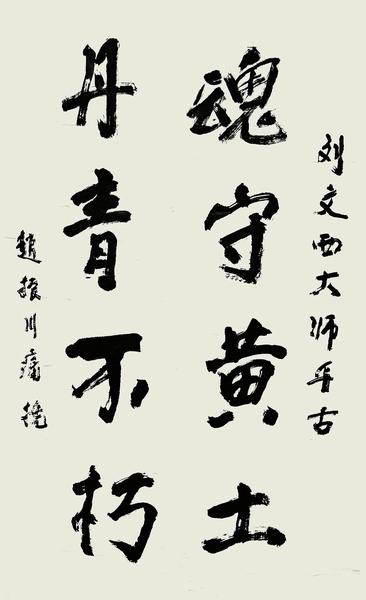 刘文西大师千古
魂守黄土
丹青不朽
趙振川痛挽